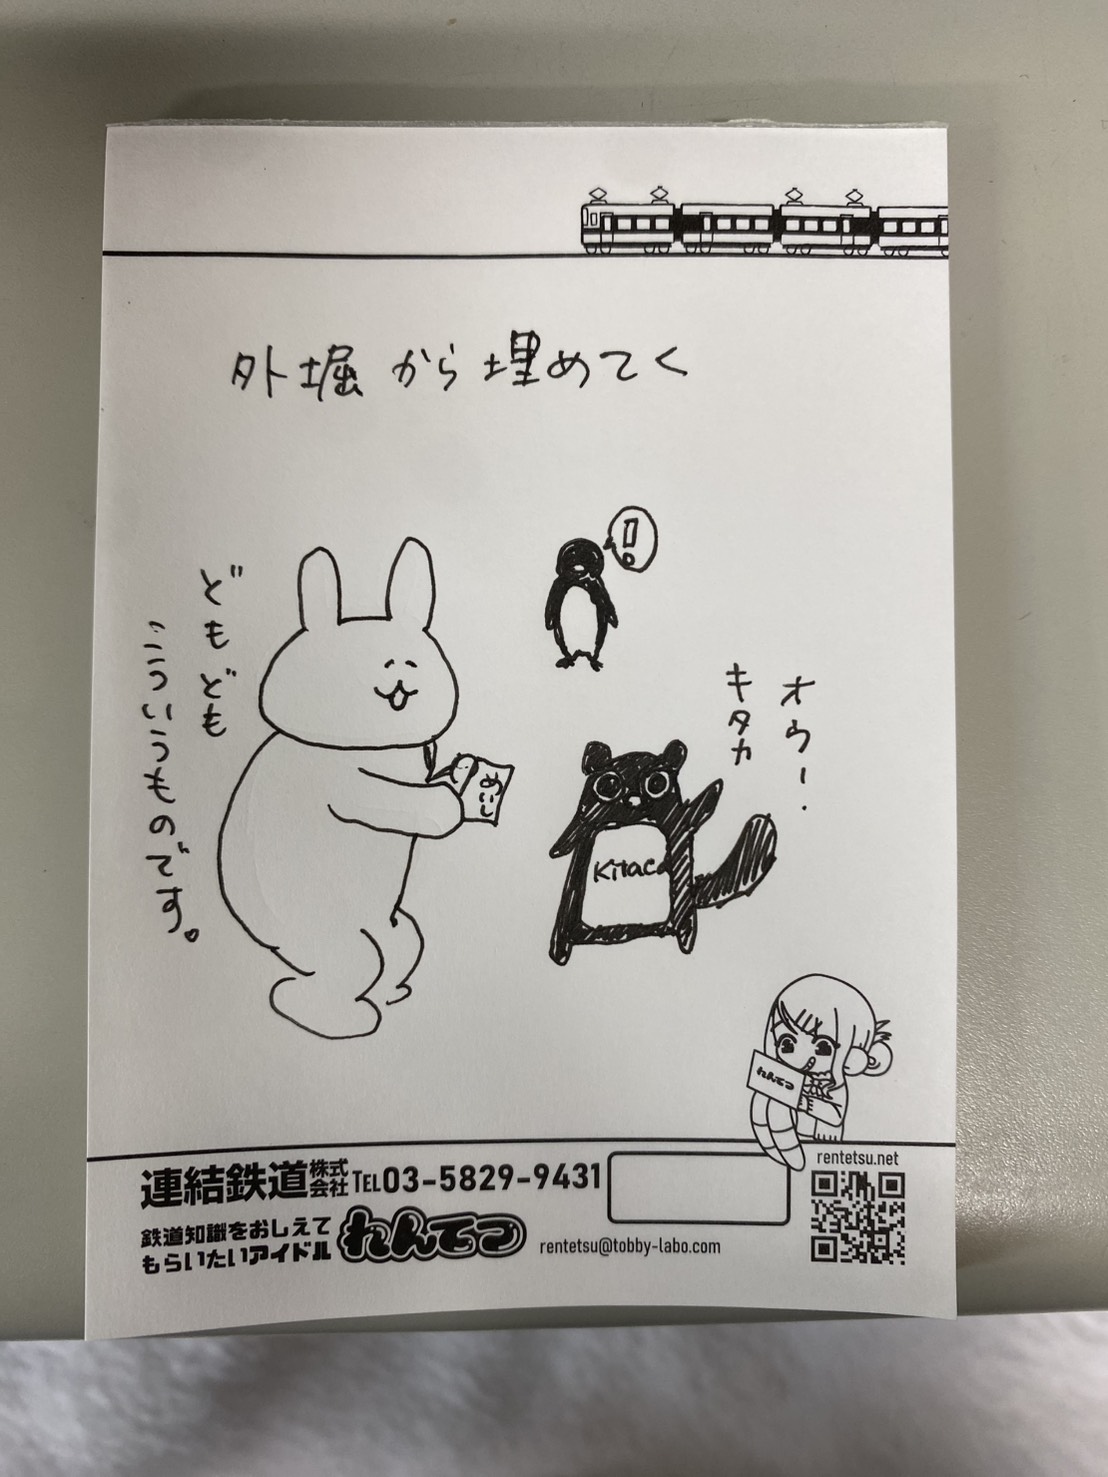 外堀から埋めてく
!
どもども
こういうものです。
めいし
オウ、、
キタカ
Kitaca
れんてつ
連結鉄道株式会社 TEL03-5829-9431
鉄道知識をおしえて
もらいたいアイドル れんてつ
rentetsu@tobby-labo.com
rentetsu.net